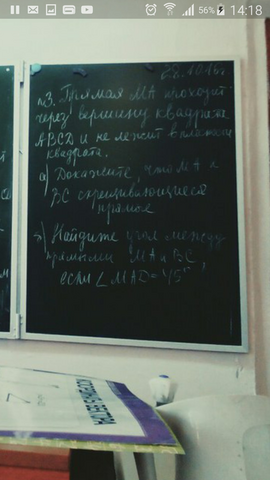 56% 14:18
28.10.16г
№3. Прямая МА проходит
через вершину квадрата
ABCD и не лежит в плоскости
квадрата.
а) Докажите, что МА и
ВС скрещивающиеся
прямые
б) Найдите угол между
прямыми МА и ВС,
если ∠ MAD = 45°